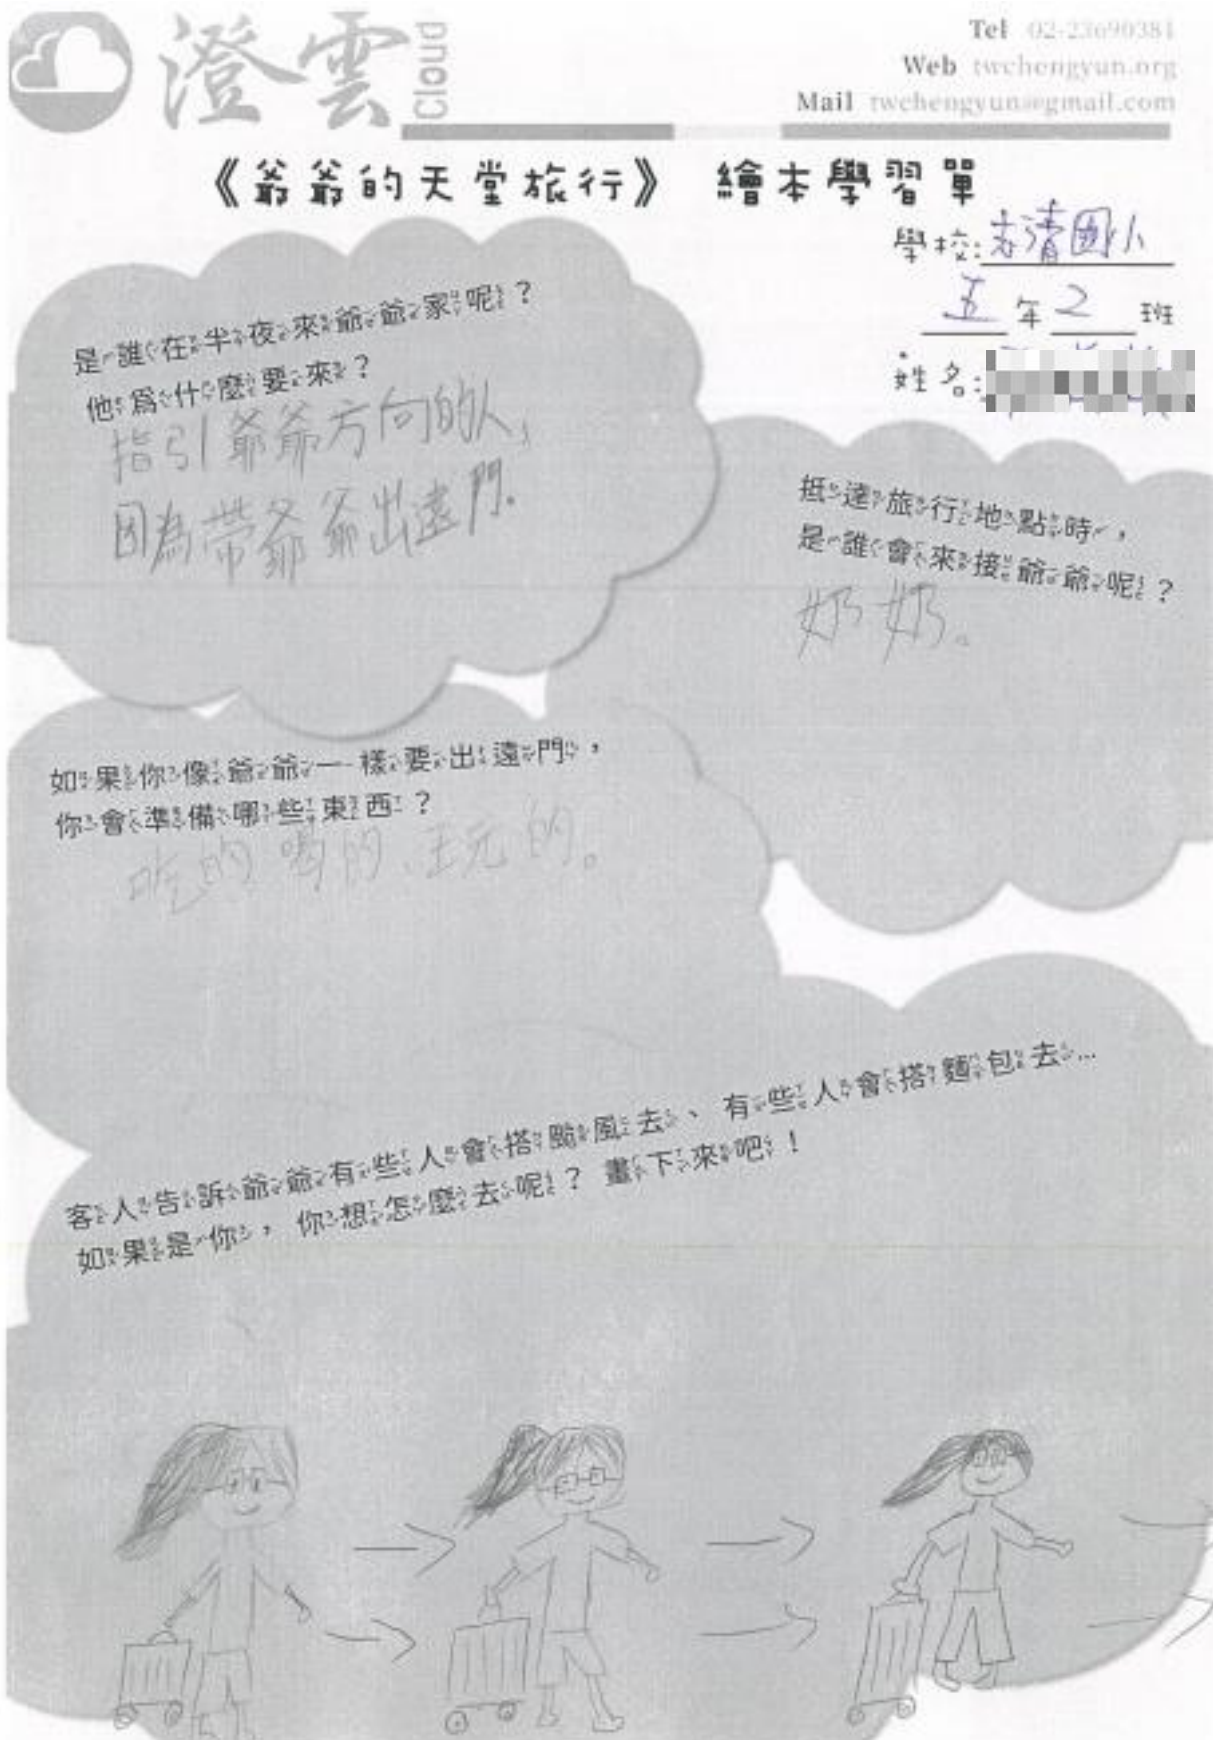 澄雲
Cloud
Tel 02-23690381
Web twchengyun.org
Mail twchengyun@gmail.com
《爺爺的天堂旅行》 繪本學習單
學校:志清國小
五年2班
姓名:
是誰在半夜來爺爺家呢?
他為什麼要來?
指引爺爺方向的人,
因為帶爺爺出遠門。
抵達旅行地點時,
是誰會來接爺爺呢?
奶奶。
如果你像爺爺一樣要出遠門,
你會準備哪些東西?
吃的喝的、玩的。
客人告訴爺爺有些人會搭颱風去、有些人會搭麵包去...
如果是你,你想怎麼去呢?畫下來吧!